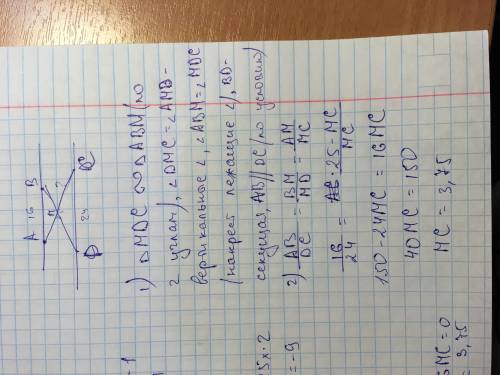 A 16 B
M ?
24
D C
1) △MDC ∾ △ABM (по
2 углам), ∠DMC = ∠AMB -
вертикальное ∠, ∠ABM = ∠MDC
(накрест лежащие ∠), BD-
секущая, AB || DC (по условию)
2) AB/DC = BM/MD = AM/MC
16/24 = 25-MC/MC
150-24MC = 16MC
40MC = 150
MC = 3,75
-1
5x·2
= -9
6MC = 0
= 3,75